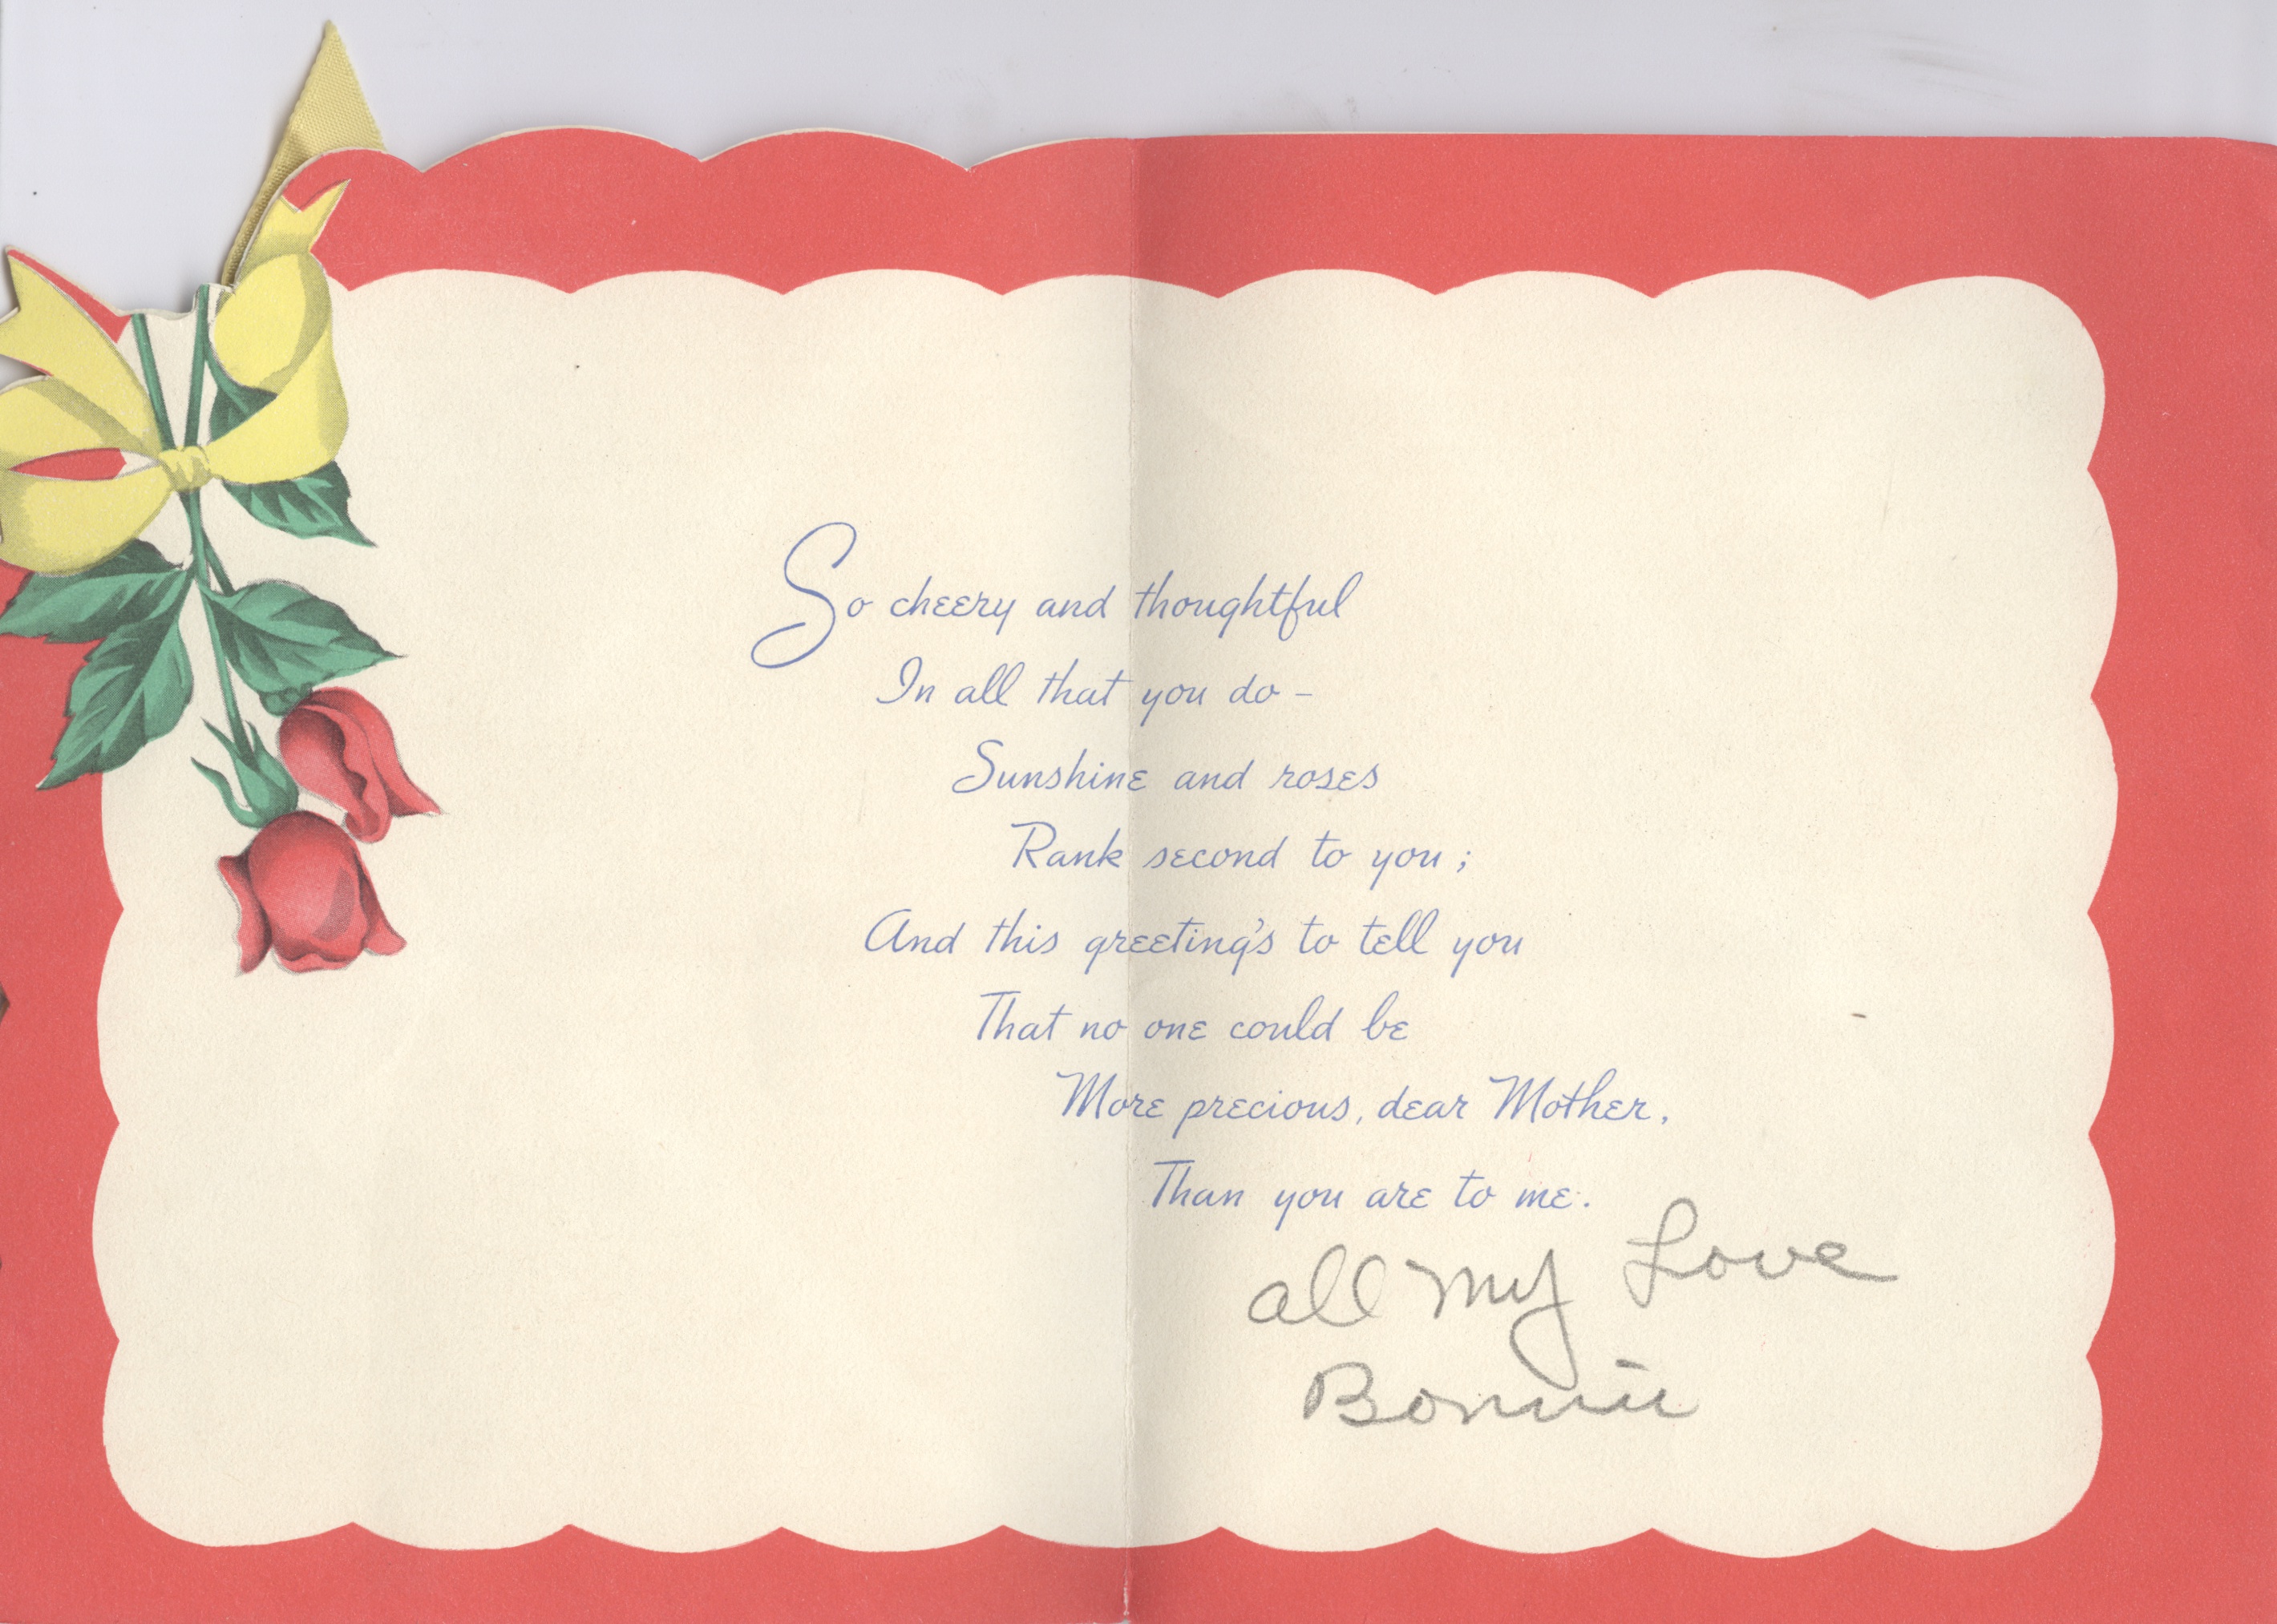 So cheery and thoughtful
In all that you do -
Sunshine and roses
Rank second to you;
And this greeting's to tell you
That no one could be
More precious, dear Mother,
Than you are to me.
all my Love
Bonnie